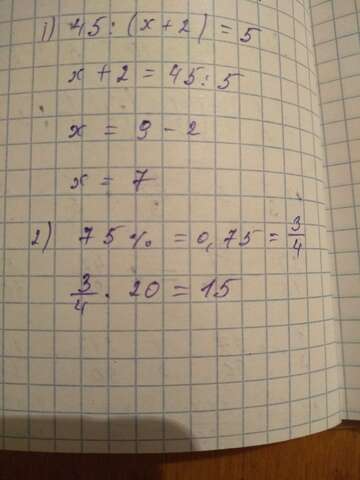 1) 45 : (x + 2) = 5
x + 2 = 45 : 5
x = 9 - 2
x = 7
2) 75% = 0,75 = 3/4
3/4 · 20 = 15